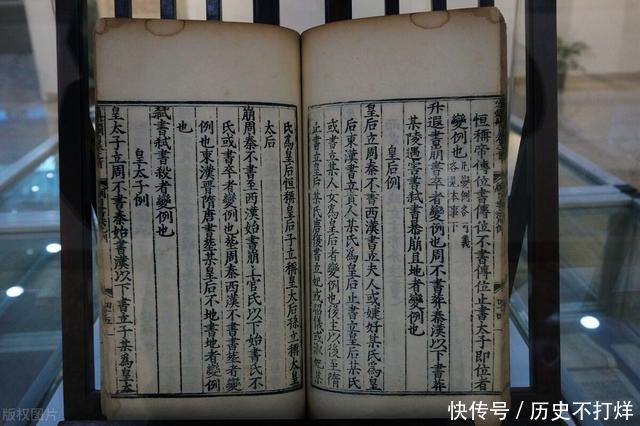 恒稱帝傳位書傳位不書傳位止書太子即位者
變例也
升遐書崩書卒者變例也周不書葬秦漢以下書葬
某陵遇害書弑書暴崩且地者變例也
皇后例
皇后立周秦不書西漢書立夫人或婕妤某氏為皇
后東漢書立貴人某氏為皇后止書立皇后某氏
止書立某人女為皇后者變例也後主以後至隋
止書立皇后某氏后後書立妃或昭儀或淑妃某
氏為皇后恒稱皇后子立稱皇太后孫立稱太皇
太后
崩周秦不書至西漢始書崩上官氏以下始書氏不
氏或書卒者變例也葬周秦西漢不書書葬者變
例也東漢晉隋唐書葬某皇后不地書地者變例
也
弑書弑書殺者變例也
皇太子例
皇太子立周不書秦始書漢以下書立子某為皇太
版权图片
快传号／历史不打烊